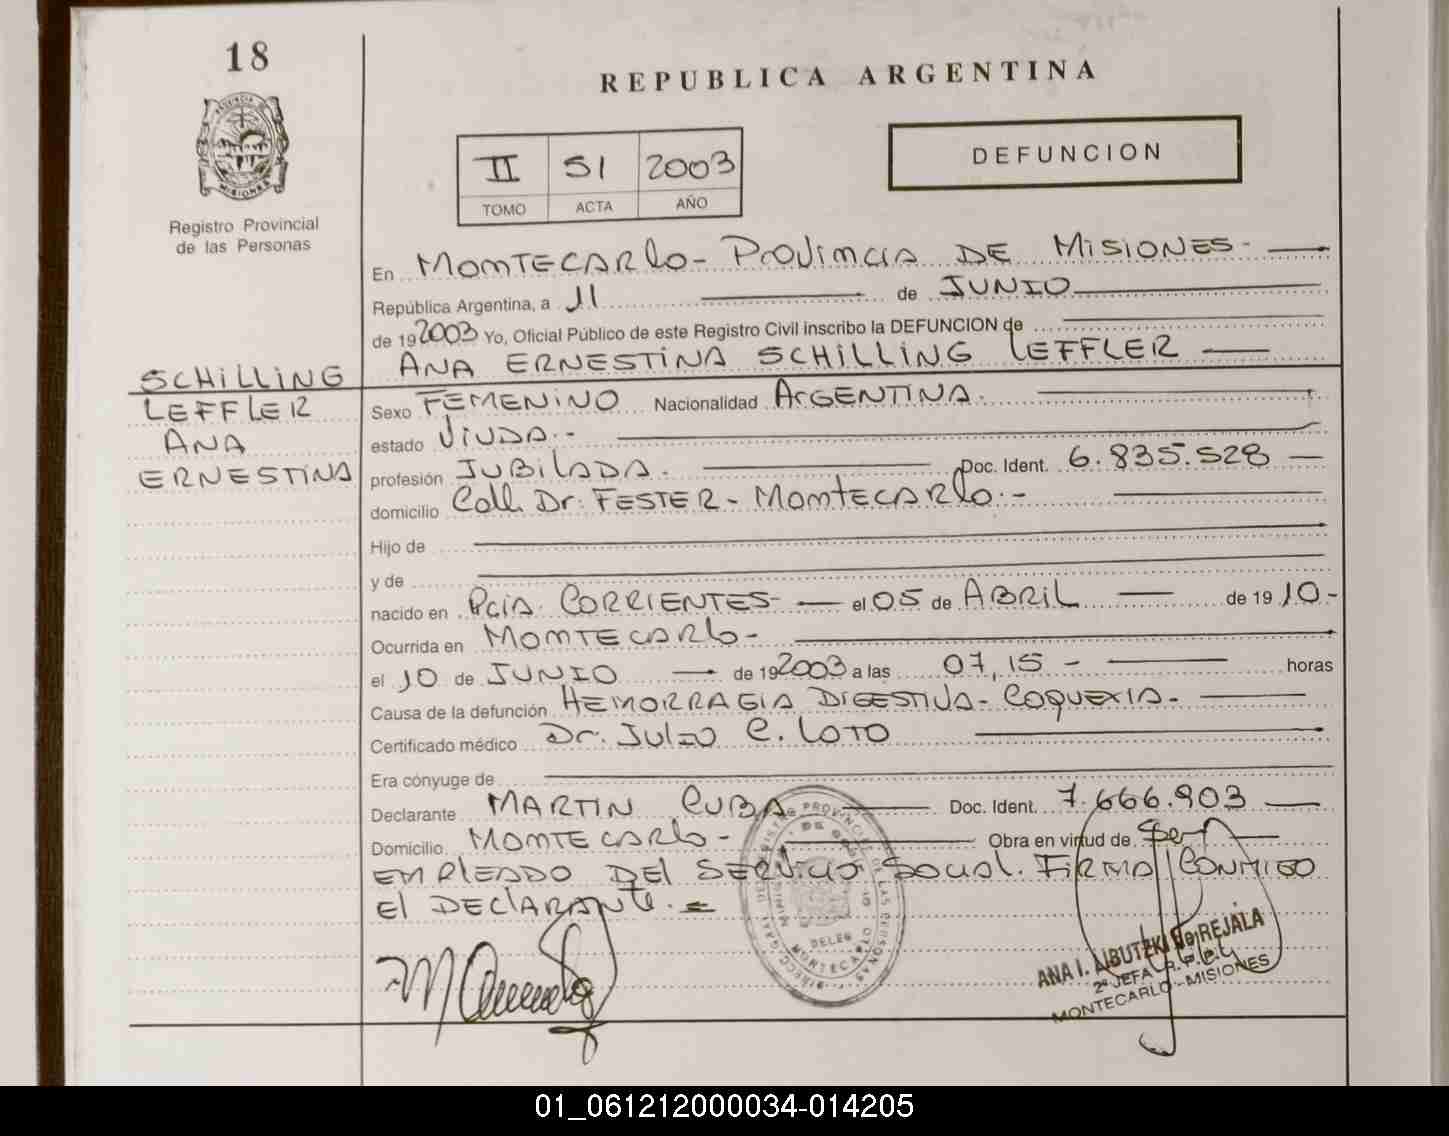 18
REPUBLICA ARGENTINA
PROVINCIA DE
MISIONES
Registro Provincial
de las Personas
II 51 2003
TOMO ACTA AÑO
DEFUNCION
En MONTECARLO - PROVINCIA DE MISIONES -
República Argentina, a 11 de JUNIO
de 19 2003 Yo, Oficial Público de este Registro Civil inscribo la DEFUNCION de
ANA ERNESTINA SCHILLING LEFFLER
SCHILLING
LEFFLER
ANA
ERNESTINA
Sexo FEMENINO Nacionalidad ARGENTINA.
estado VIUDA.-
profesión JUBILADA. Doc. Ident. 6.835.528
domicilio Coll. Dr. FESTER - MONTECARLO.-
Hijo de
y de
nacido en PCIA. CORRIENTES- el 05 de ABRIL de 19 10-
Ocurrida en MONTECARLO-
el 10 de JUNIO de 19 2003 a las 07,15 - horas
Causa de la defunción HEMORRAGIA DIGESTIVA - COQUEXIA-
Certificado médico Dr. JULIO C. LOTO
Era cónyuge de
Declarante MARTIN CUBA Doc. Ident. 7.666.903
Domicilio MONTECARLO - Obra en virtud de Ser
EMPLEADO DEL SERVICIO SOCIAL. FIRMA CONMIGO
EL DECLARANTE.-
DELEG
MONTECARLO
ANA I. de REJALA
2ª JEFA R.P.P.
MONTECARLO - MISIONES
01_061212000034-014205